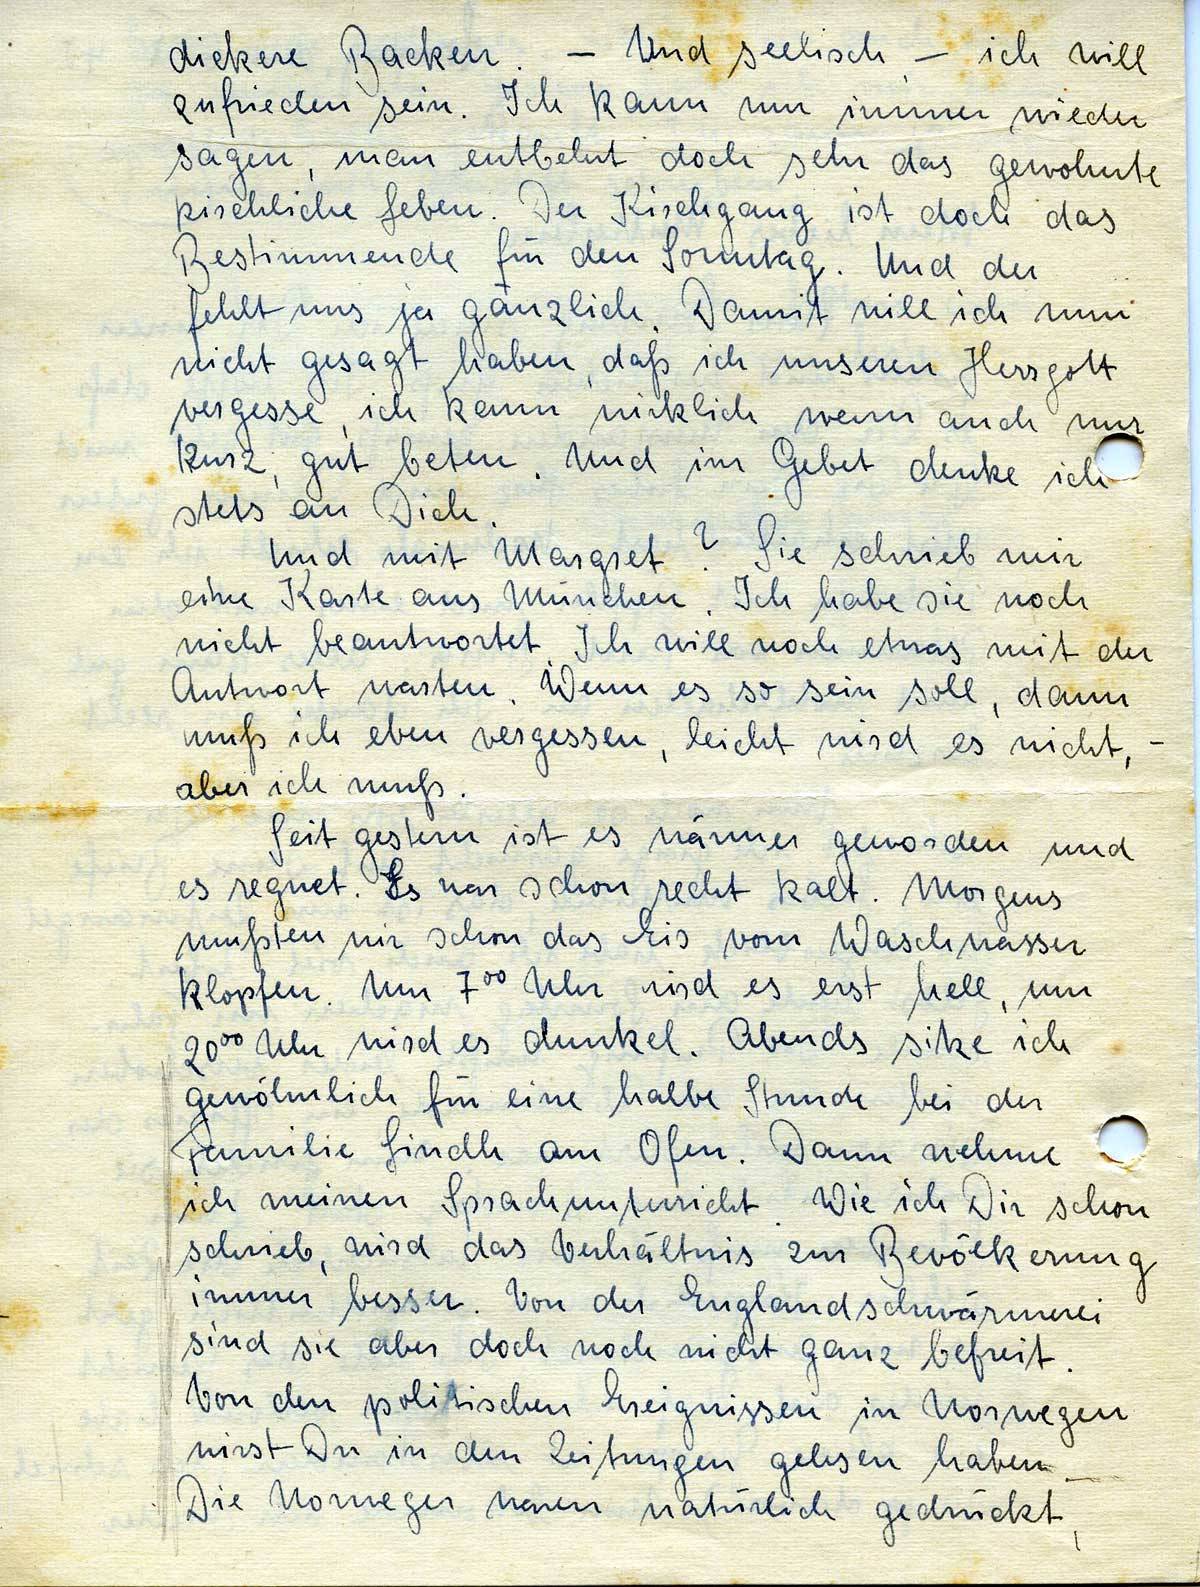 dickere Backen. – Und seelisch, – ich will
zufrieden sein. Ich kann nur immer wieder
sagen, man entbehrt doch sehr das gewohnte
kirchliche Leben. Der Kirchgang ist doch das
Bestimmende für den Sonntag. Und der
fehlt uns ja gänzlich. Damit will ich nun
nicht gesagt haben, daß ich unseren Herrgott
vergesse, ich kann wirklich wenn auch nur
kurz, gut beten. Und im Gebet denke ich
stets an Dich.
Und mit Margret? Sie schrieb mir
eine Karte aus München. Ich habe sie noch
nicht beantwortet. Ich will noch etwas mit der
Antwort warten. Wenn es so sein soll, dann
muß ich eben vergessen, leicht wird es nicht, –
aber ich muß.
Seit gestern ist es wärmer geworden und
es regnet. Es war schon recht kalt. Morgens
mußten wir schon das Eis vom Waschwasser
klopfen. Um 7⁰⁰ Uhr wird es erst hell, um
20⁰⁰ Uhr wird es dunkel. Abends sitze ich
gewöhnlich für eine halbe Stunde bei der
Familie Lindh am Ofen. Dann nehme
ich meinen Sprachunterricht. Wie ich Dir schon
schrieb, wird das Verhältnis zur Bevölkerung
immer besser. Von der Englandschwärmerei
sind sie aber doch noch nicht ganz befreit.
Von den politischen Ereignissen in Norwegen
wirst Du in den Zeitungen gelesen haben.
Die Norweger waren natürlich gedrückt,